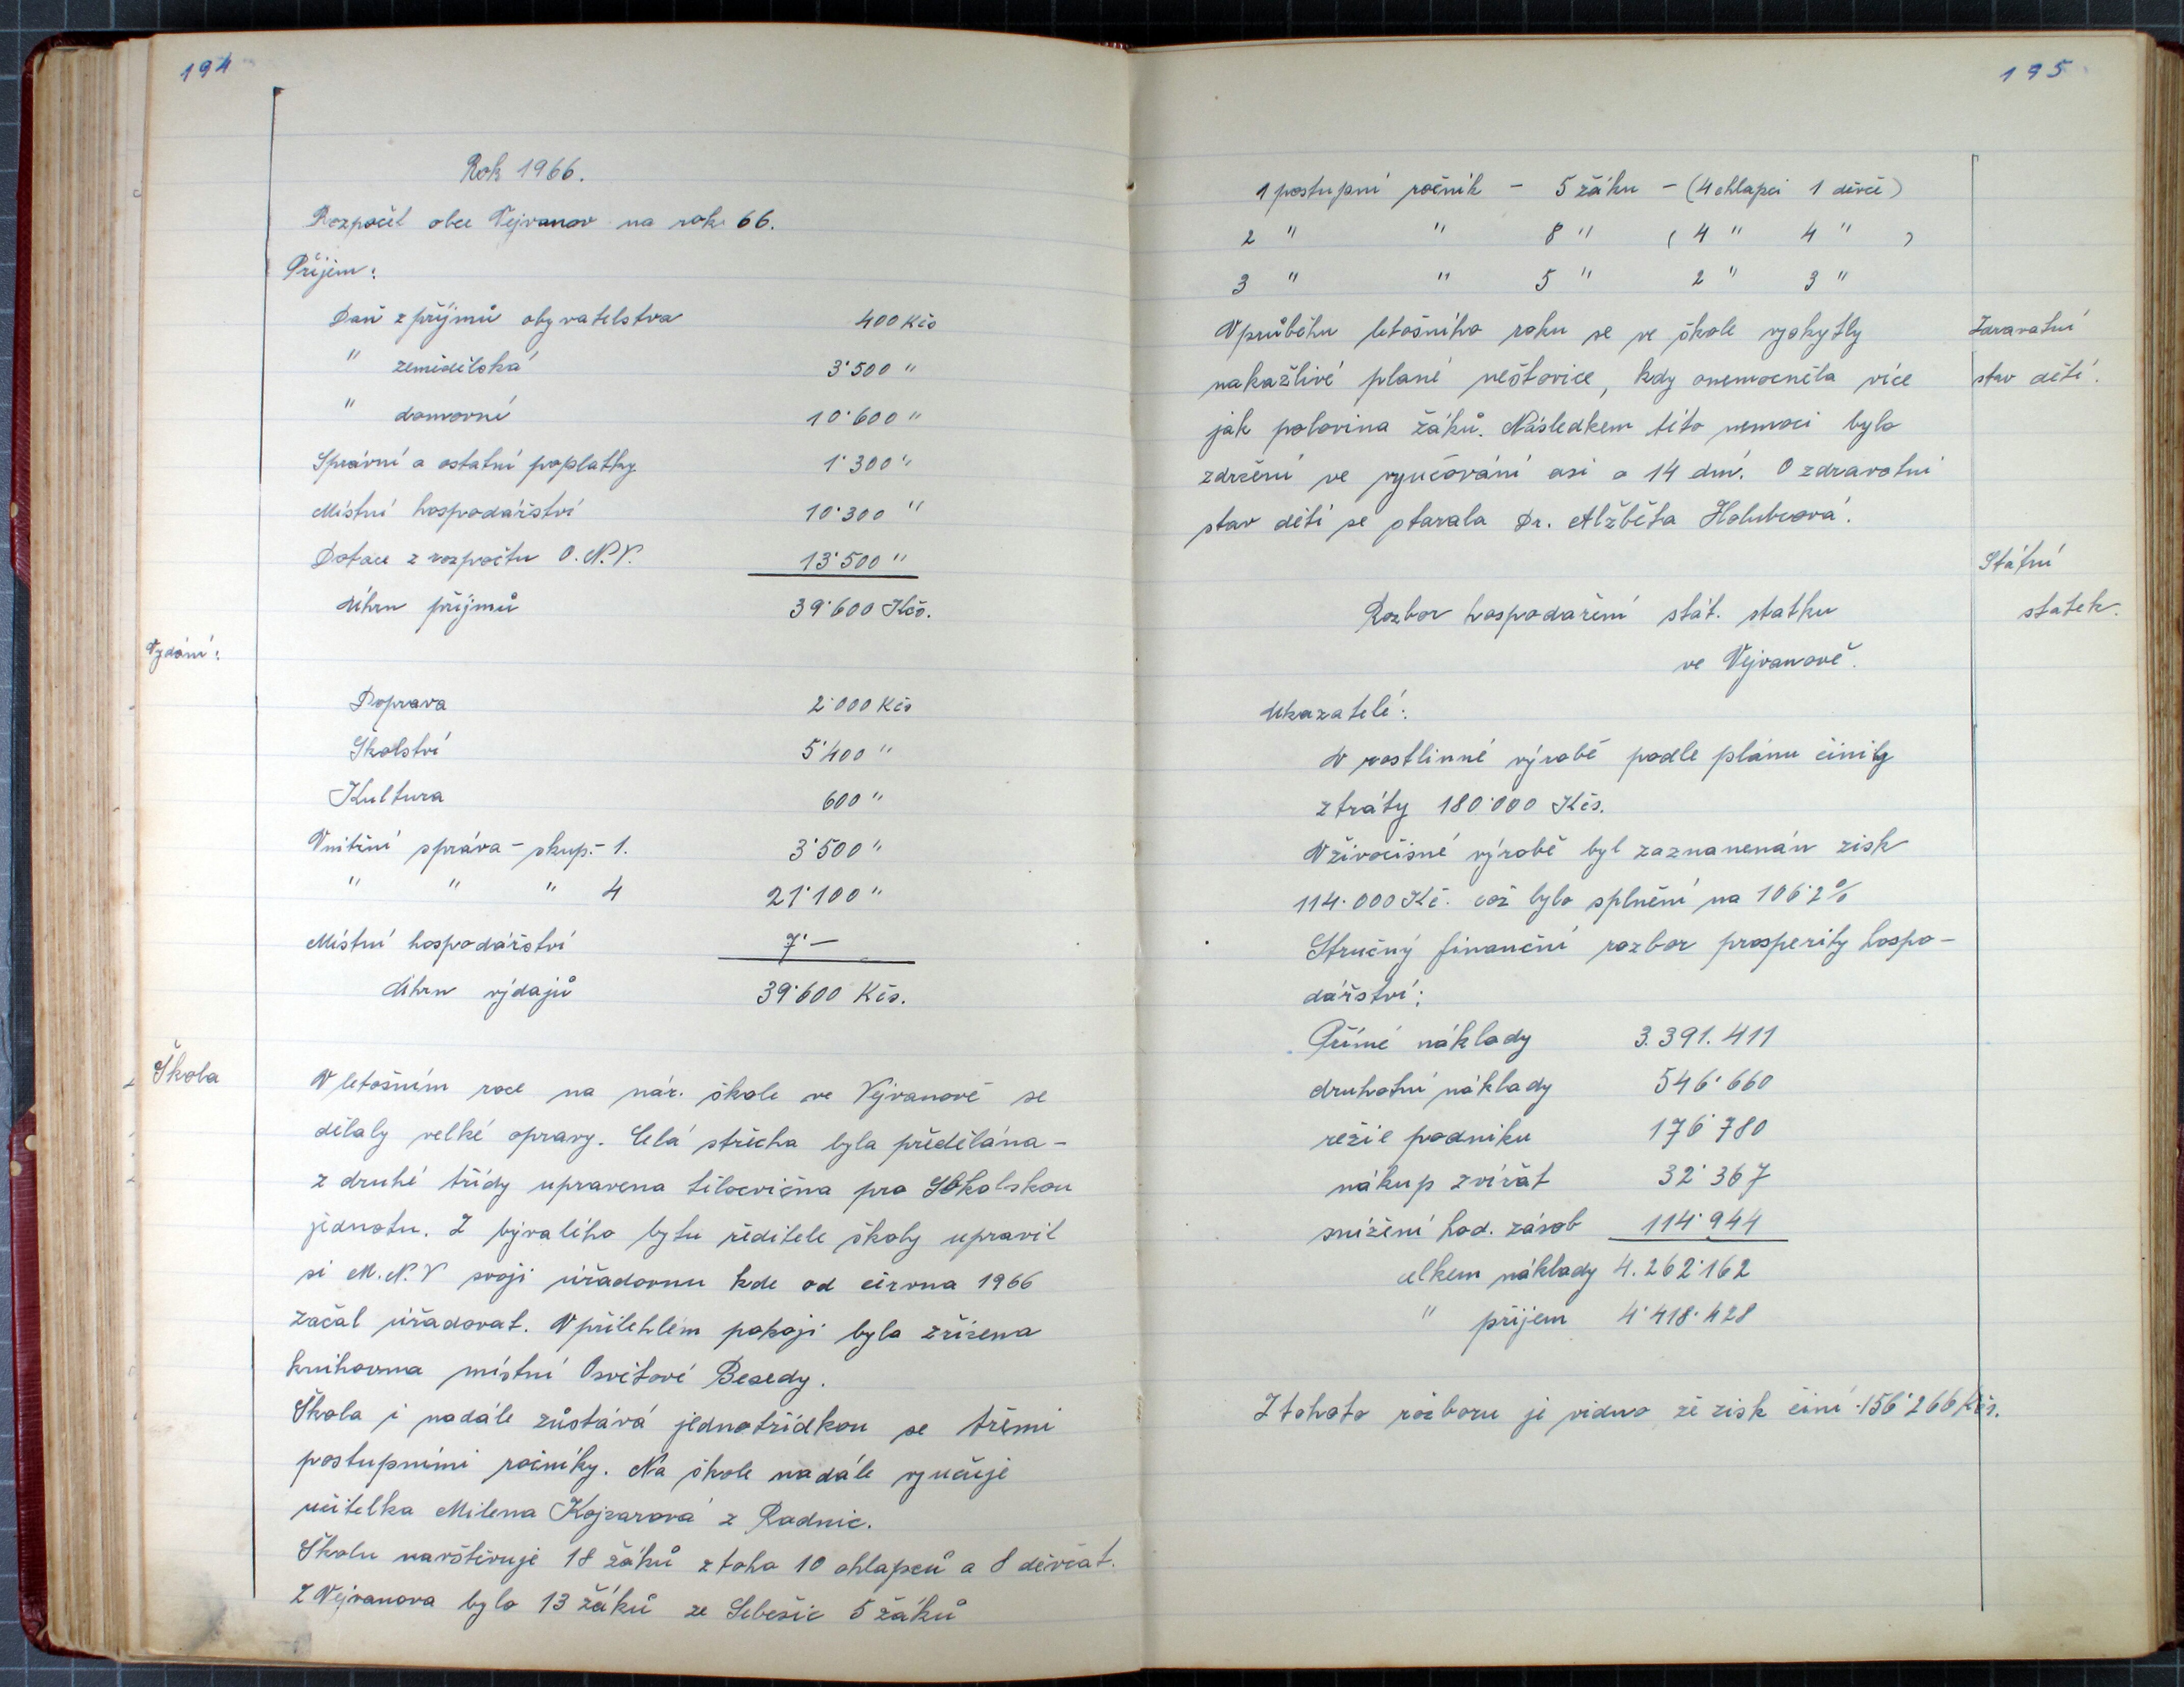 194
Rok 1966.
Rozpočet obce Vejvanov na rok 66.
Příjem:
Daň z příjmů obyvatelstva 400 Kčs
" zemědělská 3'500 "
" domovní 10'600 "
Správní a ostatní poplatky 1'300 "
Místní hospodářství 10'300 "
Dotace z rozpočtu O.N.V. 13'500 "
Úhrn příjmů 39'600 Kčs.
Vydání:
Doprava 2'000 Kčs
Školství 5'400 "
Kultura 600 "
Vnitřní správa - skup.- 1. 3'500 "
" " " 4 21'100 "
Místní hospodářství 7'—
Úhrn výdajů 39'600 Kčs.
Škola
V letošním roce na nár. škole ve Vejvanově se
dělaly velké opravy. Celá střecha byla předělána -
z druhé třídy upravena tělocvična pro Sokolskou
jednotu. Z bývalého bytu ředitele školy upravil
si M.N.V svoji úřadovnu kde od června 1966
začal úřadovat. V přilehlém pokoji byla zřízena
knihovna místní Osvětové Besedy.
Škola i nadále zůstává jednotřídkou se třemi
postupními ročníky. Na škole nadále vyučuje
učitelka Milena Kojzarová z Radnic.
Školu navštěvuje 18 žáků z toho 10 chlapců a 8 děvčat.
Z Vejvanova bylo 13 žáků ze Lebešic 5 žáků
195
1 postupní ročník - 5 žáku - (4 chlapci 1 děvče)
2 " " 8 " ( 4 " 4 " )
3 " " 5 " 2 " 3 "
V průběhu letošního roku se ve škole vyskytly
nakažlivé plané neštovice, kdy onemocněla více
jak polovina žáků. Následkem této nemoci bylo
zdržení ve vyučování asi o 14 dní. O zdravotní
stav dětí se starala Dr. Alžběta Holubcová.
Zdravotní
stav dětí.
Státní
statek.
Rozbor hospodaření stát. statku
ve Vejvanově.
Ukazatelé:
V rostlinné výrobě podle plánu činily
ztráty 180'000 Kčs.
V živočišné výrobě byl zaznamenán zisk
114.000 Kč. což bylo splnění na 106'2%
Stručný finanční rozbor prosperity hospo-
dářství:
Přímé náklady 3.391.411
druhotní náklady 546'660
režie podniku 176'780
nákup zvířat 32'367
snížení hod. zásob 114'944
celkem náklady 4.262'162
" příjem 4'418'428
Z tohoto rozboru je vidno že zisk činí 156'266 Kčs.